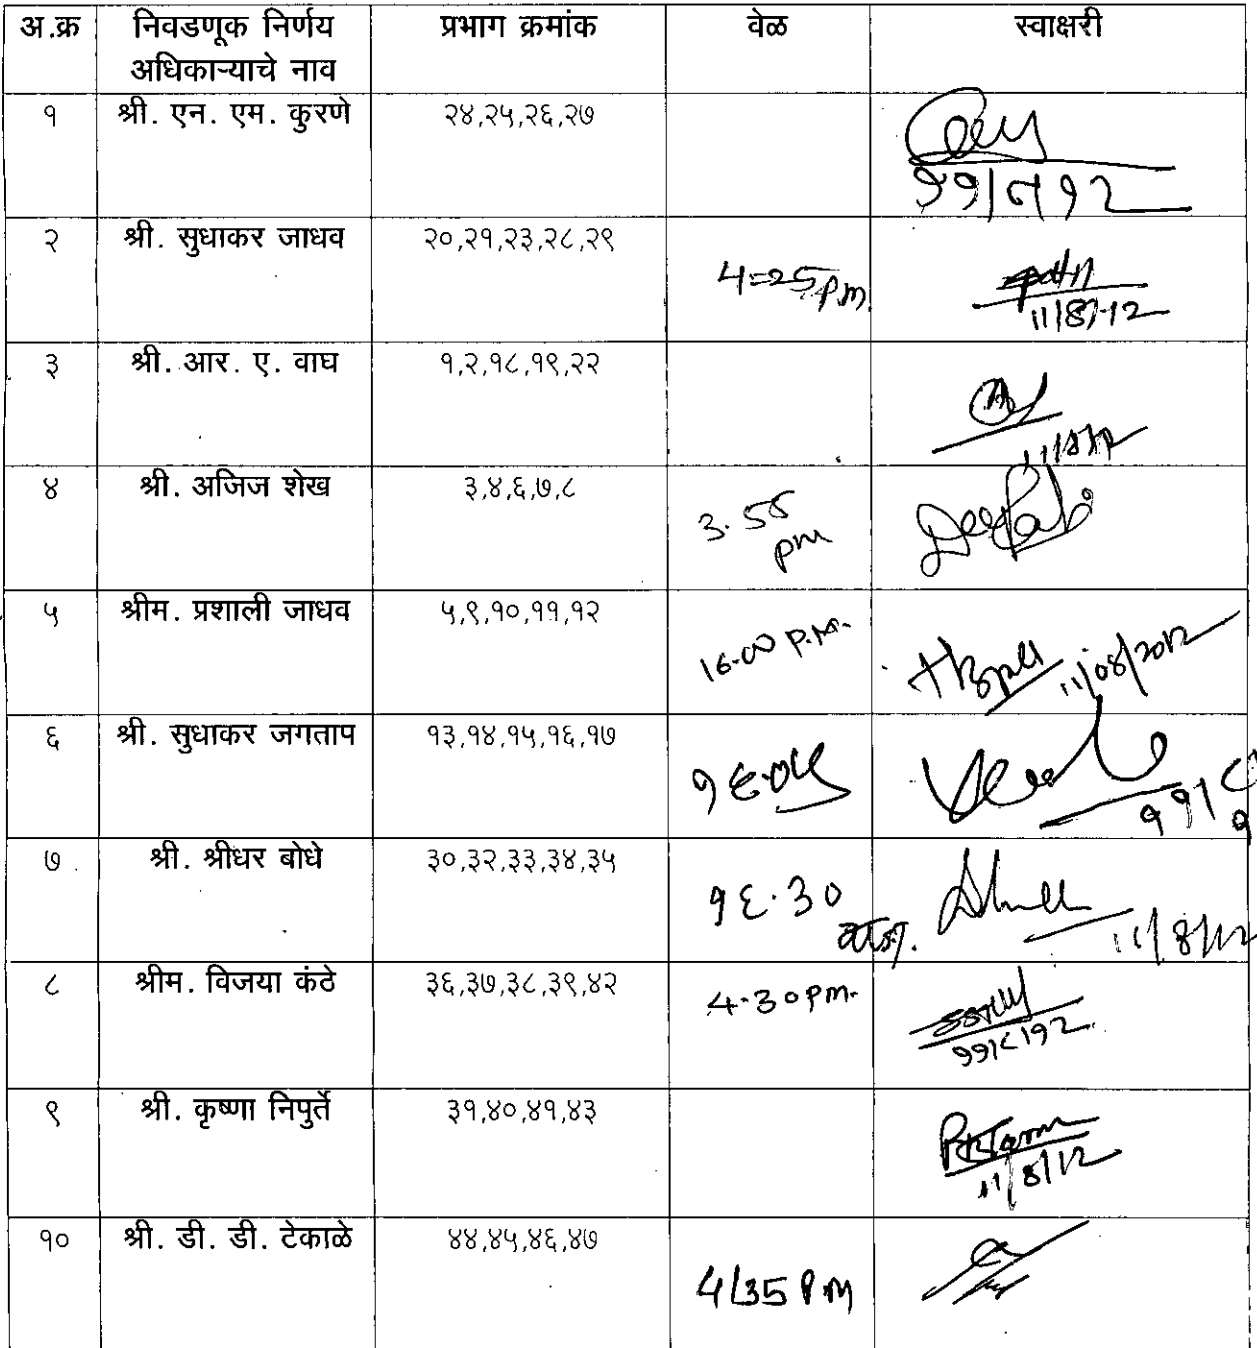 अ.क्र निवडणूक निर्णय प्रभाग क्रमांक वेळ स्वाक्षरी
अधिकाऱ्याचे नाव
१ श्री. एन. एम. कुरणे २४,२५,२६,२७
११/८/१२
२ श्री. सुधाकर जाधव २०,२१,२३,२८,२९
4=25 p.m.
11/8/12
३ श्री. आर. ए. वाघ १,२,१८,१९,२२
11/8/12
४ श्री. अजिज शेख ३,४,६,७,८
3.55
pm
५ श्रीम. प्रशाली जाधव ५,९,१०,११,१२
16.00 P.M. 11/08/2012
६ श्री. सुधाकर जगताप १३,१४,१५,१६,१७
१६.०५
११/८
७ श्री. श्रीधर बोधे ३०,३२,३३,३४,३५
१६.३०
वाज. 11/8/12
८ श्रीम. विजया कंठे ३६,३७,३८,३९,४२
4.30pm.
११/८/१२
९ श्री. कृष्णा निपुर्ते ३१,४०,४१,४३
11/8/12
१० श्री. डी. डी. टेकाळे ४४,४५,४६,४७
4/35 PM